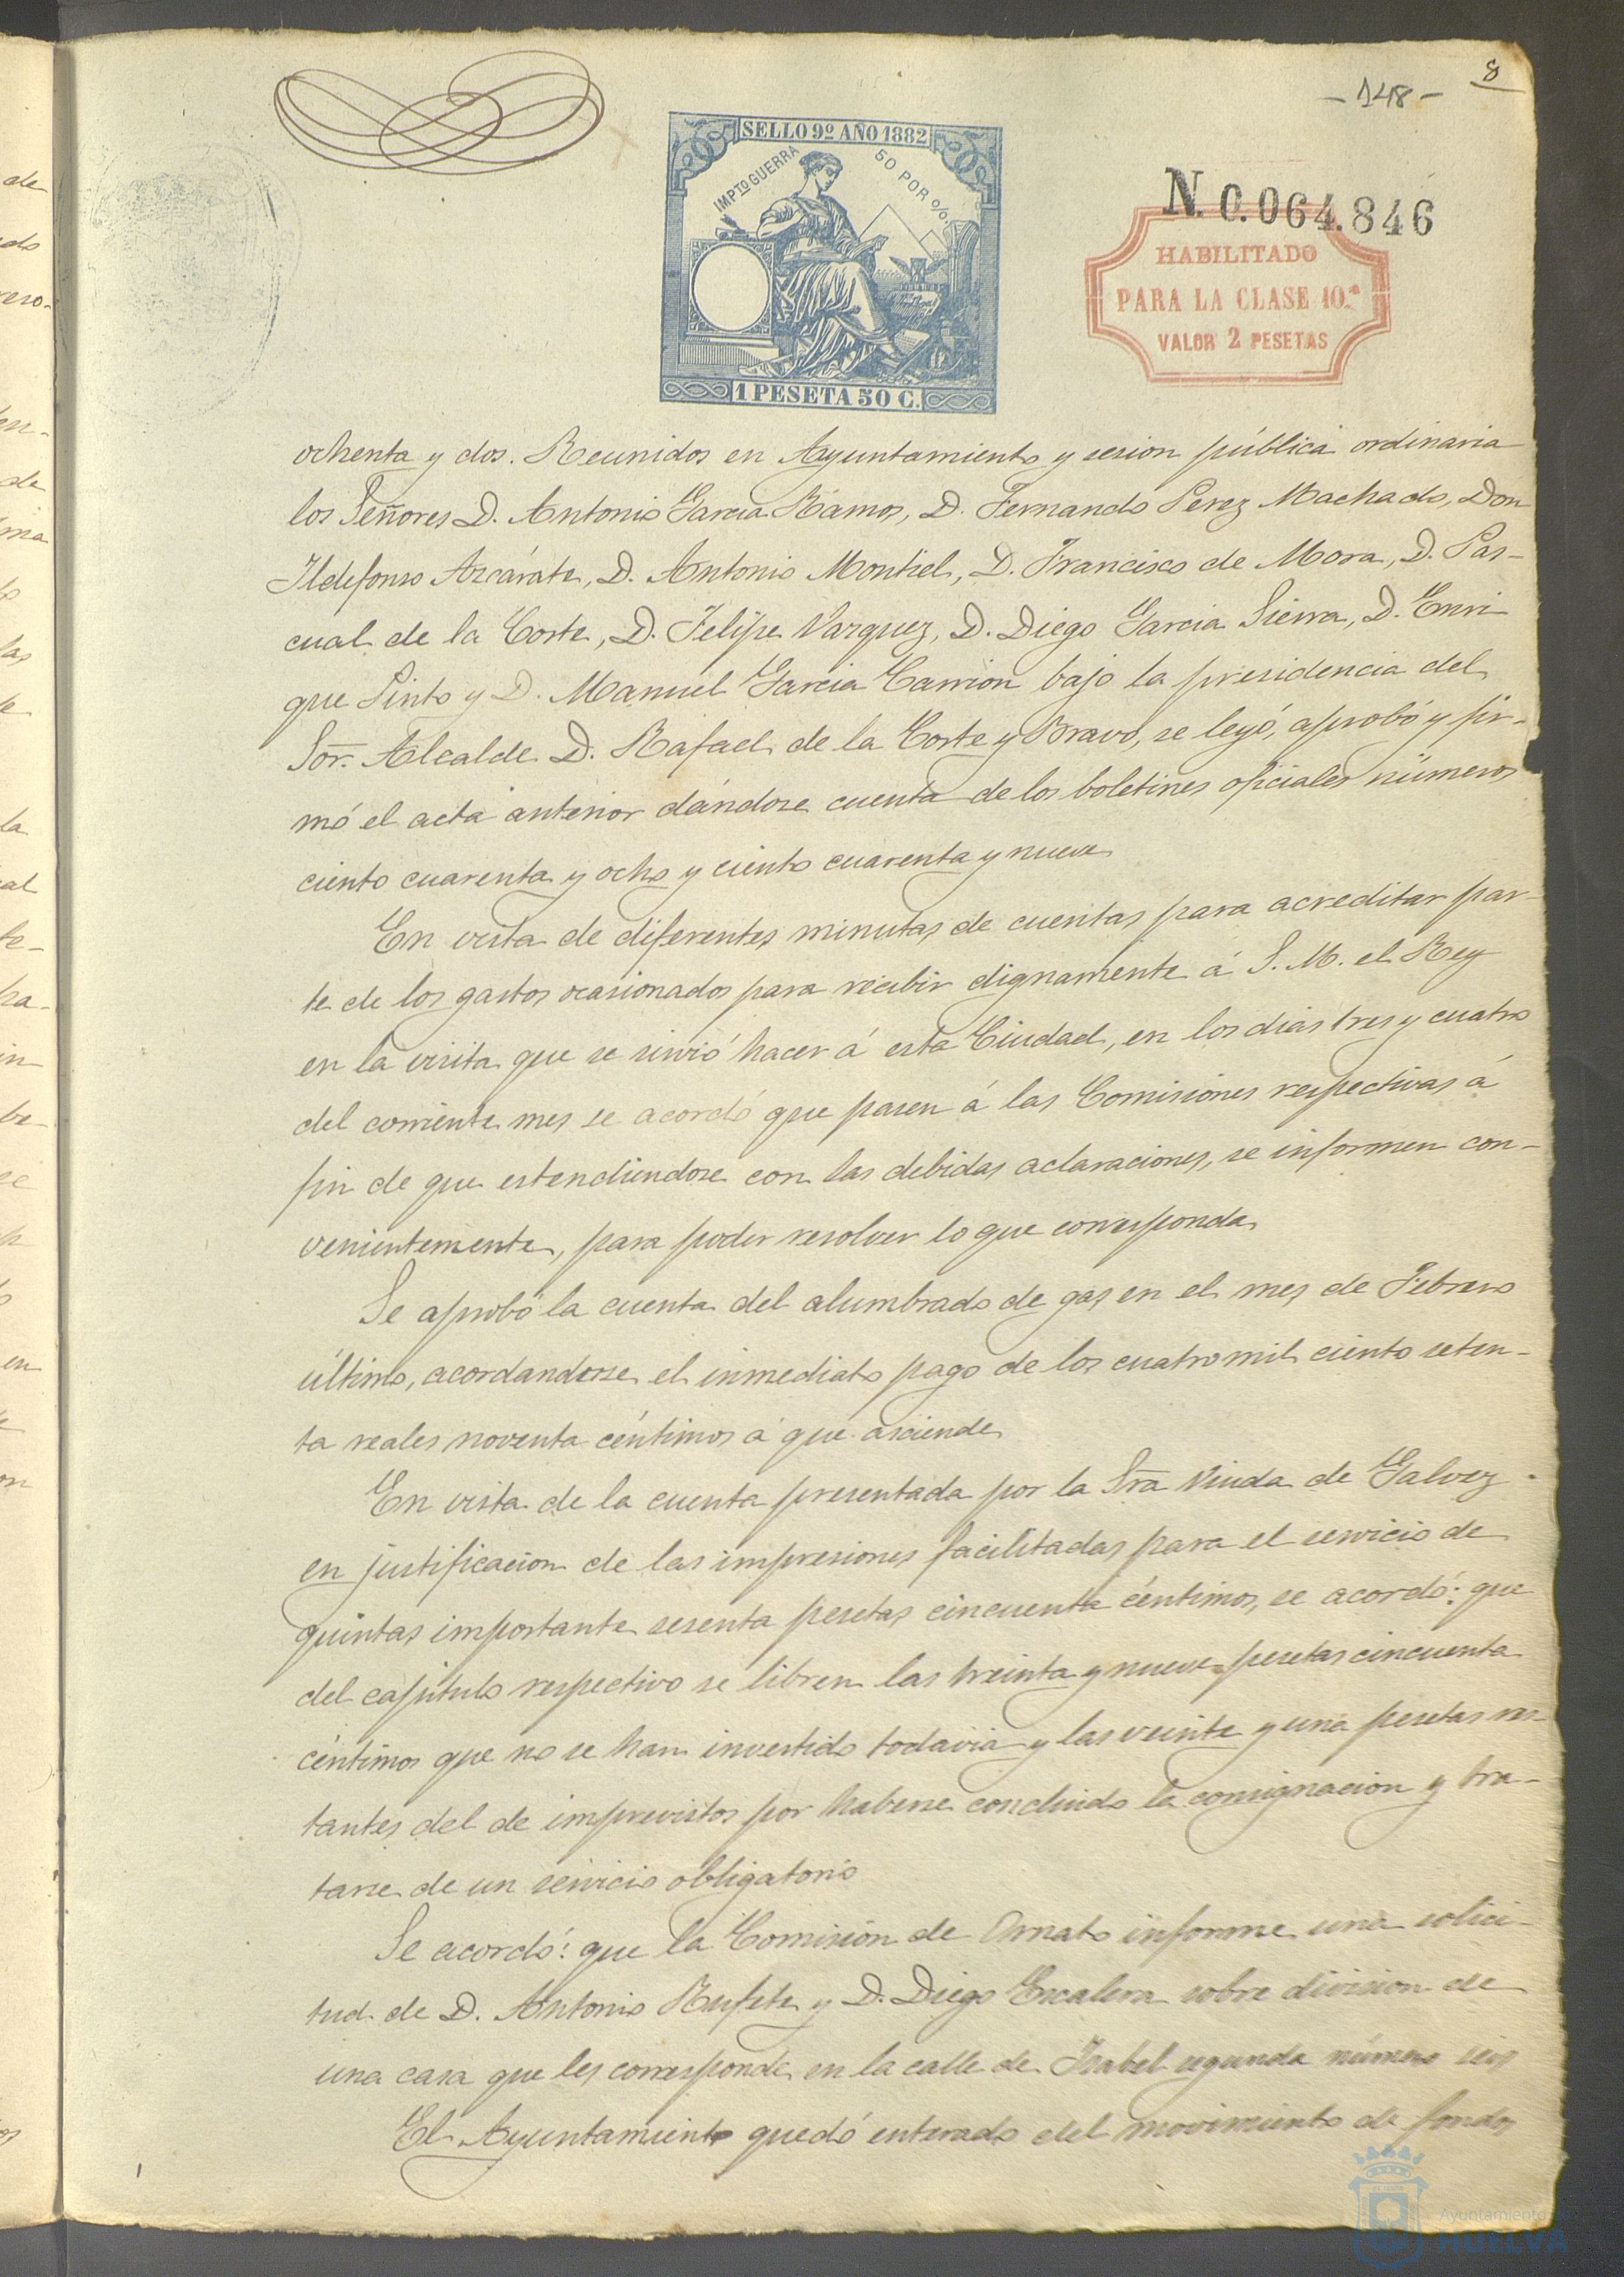 8
- 148 -
SELLO 9º AÑO 1882
IMPTO GUERRA 50 POR %
1 PESETA 50 C.
N. 0.064.846
HABILITADO
PARA LA CLASE 10.ª
VALOR 2 PESETAS
ochenta y dos. Reunidos en Ayuntamiento y sesion pública ordinaria
los Señores D. Antonio Garcia Ramos, D. Fernando Perez Machado, Don
Ildefonso Azcárate, D. Antonio Montiel, D. Francisco de Mora, D. Pas-
cual de la Corte, D. Felipe Vazquez, D. Diego Garcia Sierra, D. Enri
que Pinto y D. Manuel Garcia Carrion bajo la presidencia del
Sor. Alcalde D. Rafael de la Corte y Bravo, se leyó, aprobó y fir-
mó el acta anterior dándose cuenta de los boletines oficiales números
ciento cuarenta y ocho y ciento cuarenta y nueve
En vista de diferentes minutas de cuentas para acreditar par-
te de los gastos ocasionados para recibir dignamente á S. M. el Rey
en la visita que se sirvió hacer á esta Ciudad, en los dias tres y cuatro
del corriente mes se acordó que pasen á las Comisiones respectivas á
fin de que estendiendose con las debidas aclaraciones, se informen con-
venientemente, para poder resolver lo que corresponda
Se aprobó la cuenta del alumbrado de gas en el mes de Febrero
último, acordandose el inmediato pago de los cuatro mil ciento seten-
ta reales noventa céntimos á que asciende
En vista de la cuenta presentada por la Sra Viuda de Galvez
en justificacion de las impresiones facilitadas para el servicio de
quintas importante sesenta pesetas cincuenta céntimos, se acordó: que
del capitulo respectivo se libren las treinta y nueve pesetas cincuenta
céntimos que no se han invertido todavia y las veinte y una pesetas res-
tantes del de imprevistos por haberse concluido la consignacion y tra-
tarse de un servicio obligatorio
Se acordó: que la Comisión de Ornato informe una solici-
tud de D. Antonio Rufete y D. Diego Escalera sobre division de
una casa que les corresponde en la calle de Isabel segunda número seis
El Ayuntamiento quedó enterado del movimiento de fondos
Ayuntamiento
HUELVA